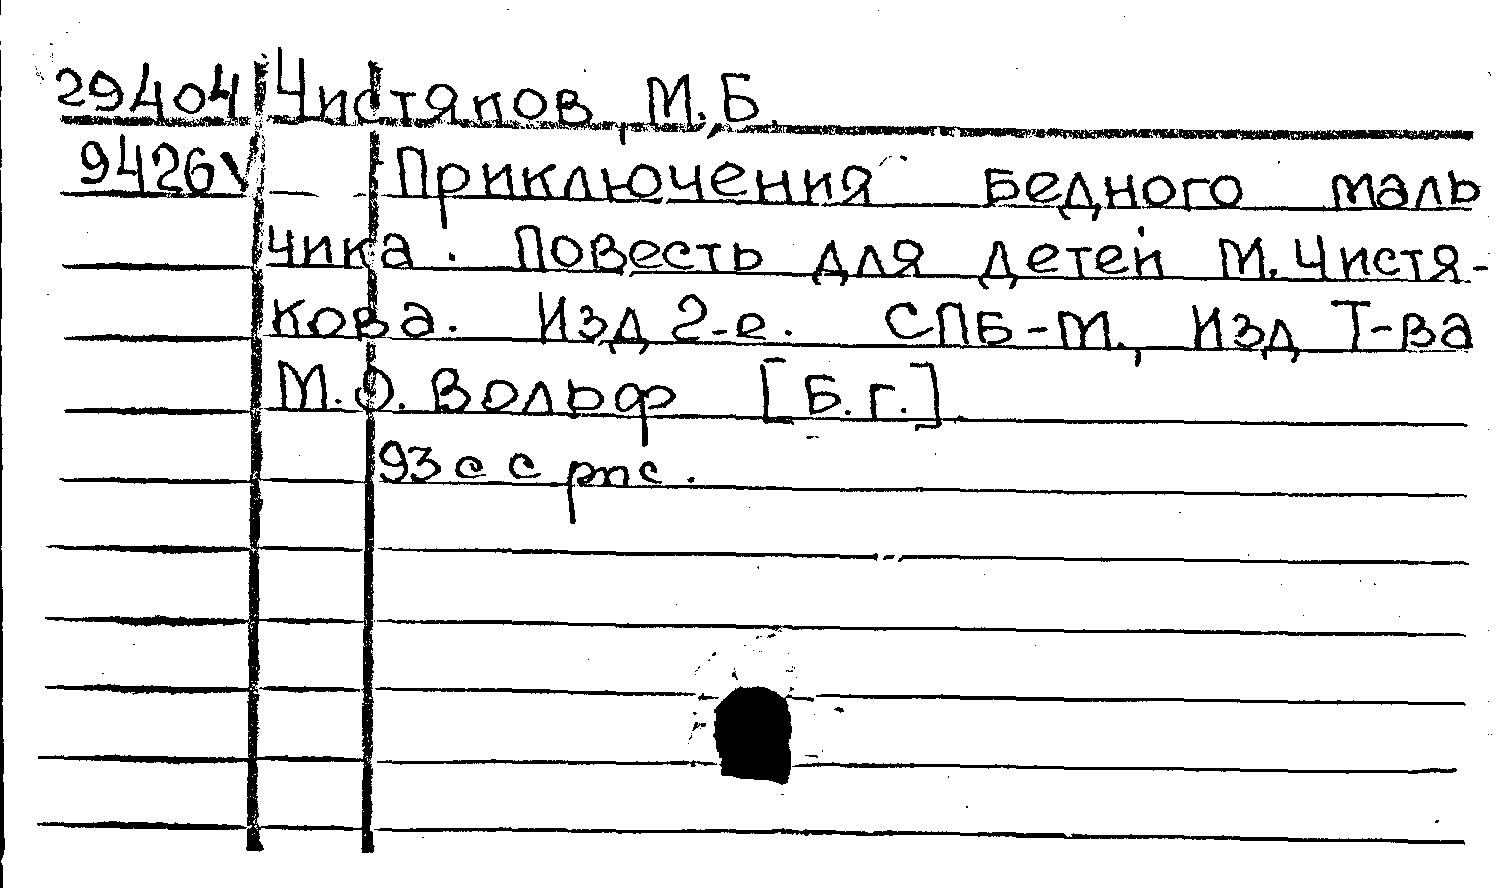 29404 Чистяков, М.Б.
9426V Приключения бедного маль
чика. Повесть для детей М.Чистя-
кова. Изд 2-е. СПБ-М., Изд Т-ва
М.О.Вольф [Б.г.]
93 с с рпс.